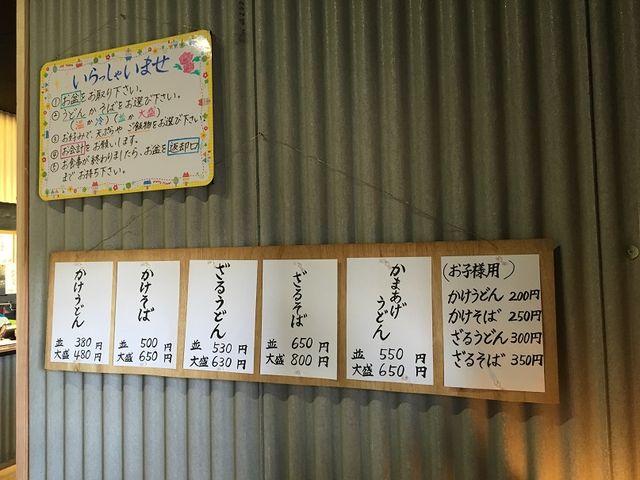 いらっしゃいませ
① お盆をお取り下さい。
② うどんかそばをお選び下さい。
(温か冷)(並か大盛)
③ お好みで、天ぷらやご飯物をお選び下さい
④ お会計をお願いします。
⑤ お食事が終わりましたら、お盆を返却口
までお持ち下さい。
かけうどん
並 380円
大盛 480円
かけそば
並 500円
大盛 650円
ざるうどん
並 530円
大盛 630円
ざるそば
並 650円
大盛 800円
かまあげ
うどん
並 550円
大盛 650円
(お子様用)
かけうどん 200円
かけそば 250円
ざるうどん 300円
ざるそば 350円